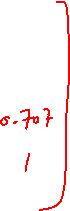 0.707
1